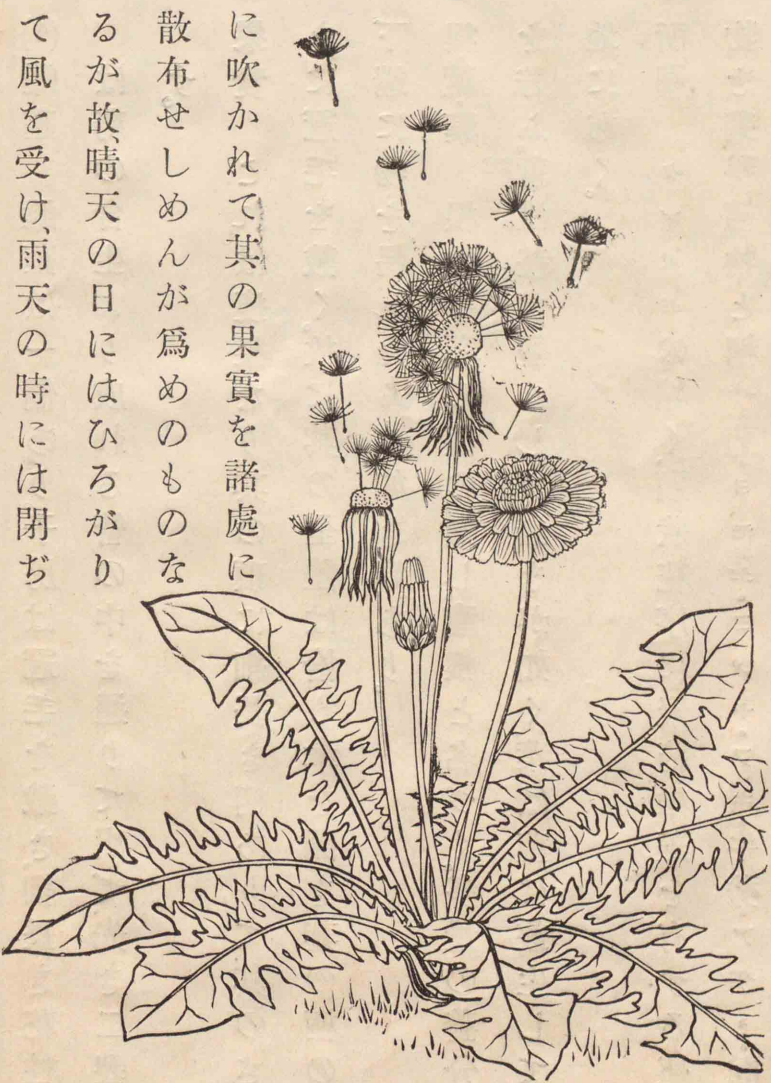 に吹かれて其の果實を諸處に
散布せしめんが爲めのものな
るが故、晴天の日にはひろがり
て風を受け、雨天の時には閉ぢ